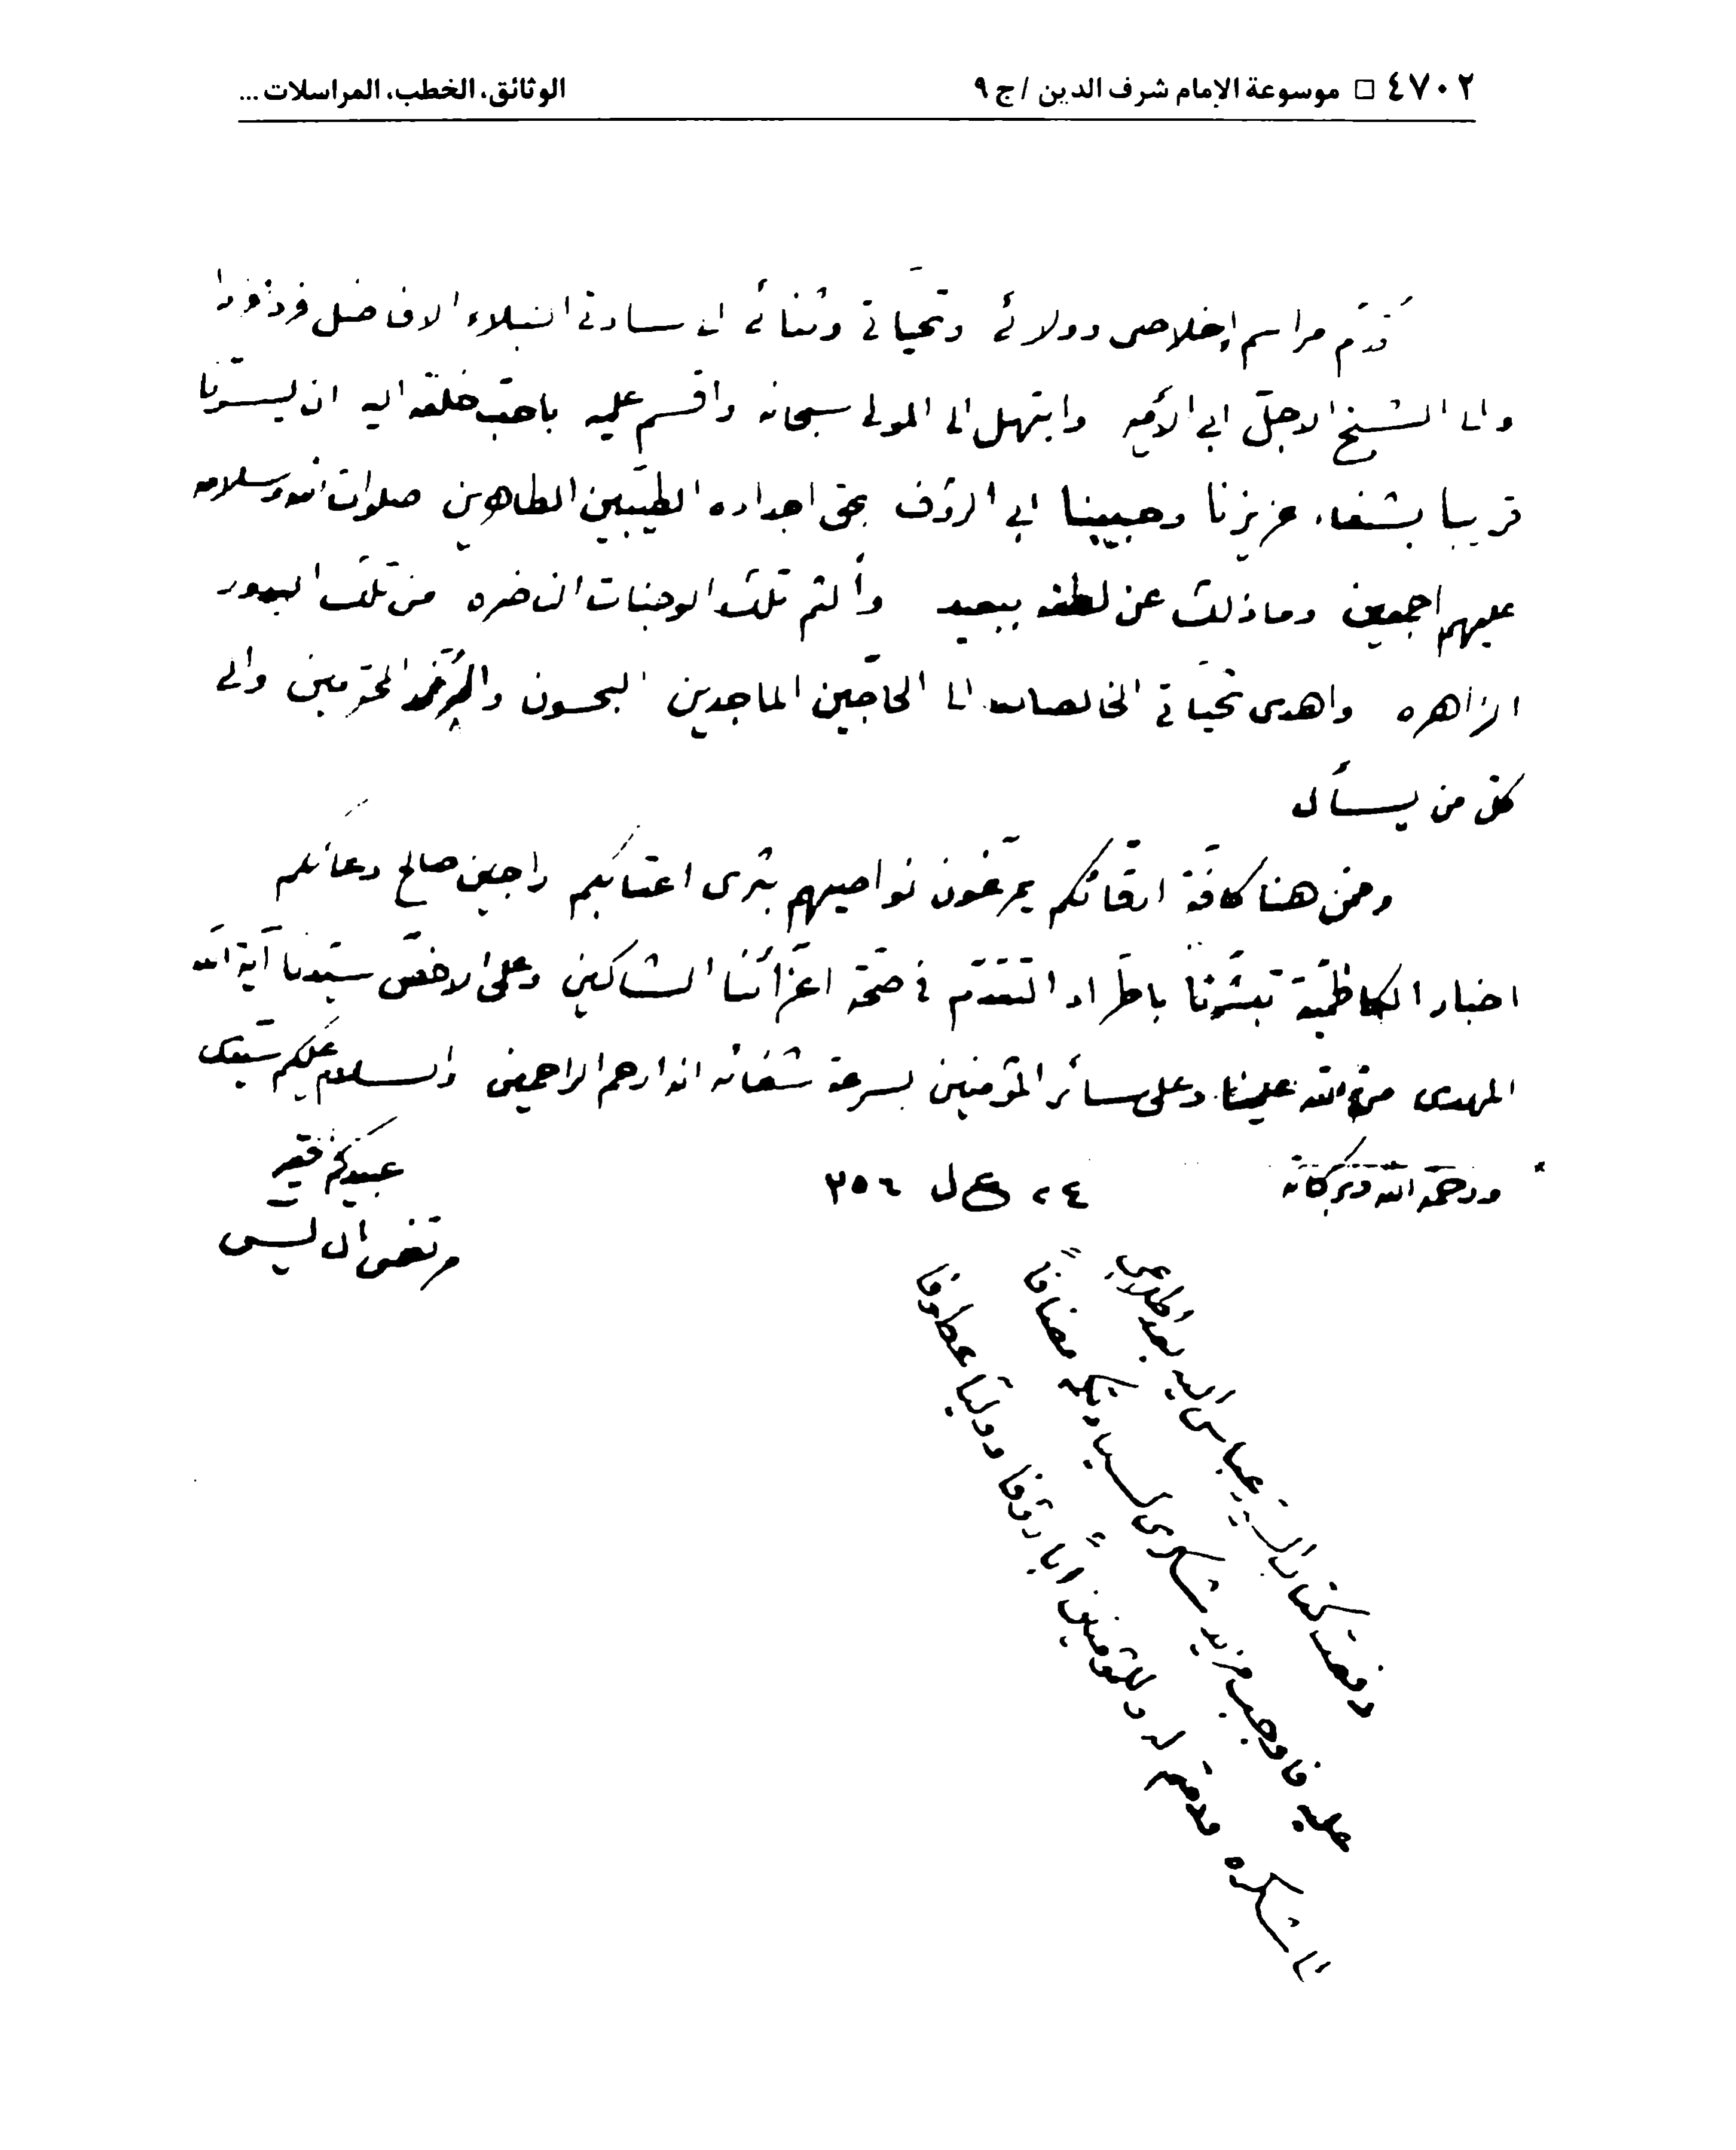 ٤٧٠٢ □ موسوعة الإمام شرف الدين / ج ٩
الوثائق، الخطب، المراسلات ...
أقدّم مراسم إخلاصى وولائى وتحيّاتى وثنائى الى سادتى النبلاء الافاضل فردا فردا
والى الشيخ الاجلّ ابى الأمير وابتهل الى المولى سبحانه واقسم عليه باحبّ خلقه اليه ان ليسرّنا
قريبا بشفاء عزيزنا وحبيبنا ابى الرؤف بحق اجداده الطيّبين الطاهرين صلوات الله وسلامه
عليهم اجمعين وما ذلك عن لطفه ببعيد وألثم تلك الوجنات الناضره من تلك البدور
الزاهره واهدى تحيّاتى الخالصات الى الحاجّين الماجدين البحسون المحترمين والى
كل من يسأل
ومن هنا كافّة ارقائكم يمرّغون نواصيهم بثرى اعتابكم راجين صالح دعائكم
اخبار الكاظميّة تبشّرنا باطّراد التقدّم فى صحّة اعزّائنا الشاكين وعلى الاخصّ سيّدنا آية الله
المهدى منّ الله علينا وعلى سائر المؤمنين بسرعة شفائه انه ارحم الراحمين والسلام عليكم سيّدى
ورحمة الله وبركاته
٢٤ ع ل ٣٥٦
عبيدكم فقير
مرتضى ال يس
دفعت كتاب السيد عباس اليه بعد
عليه فاوجب مزيد شكرى لسيادتكم مضافاً
لما شكره منكم له وللمؤمنين أباً رؤفا ووليّا عطوفا